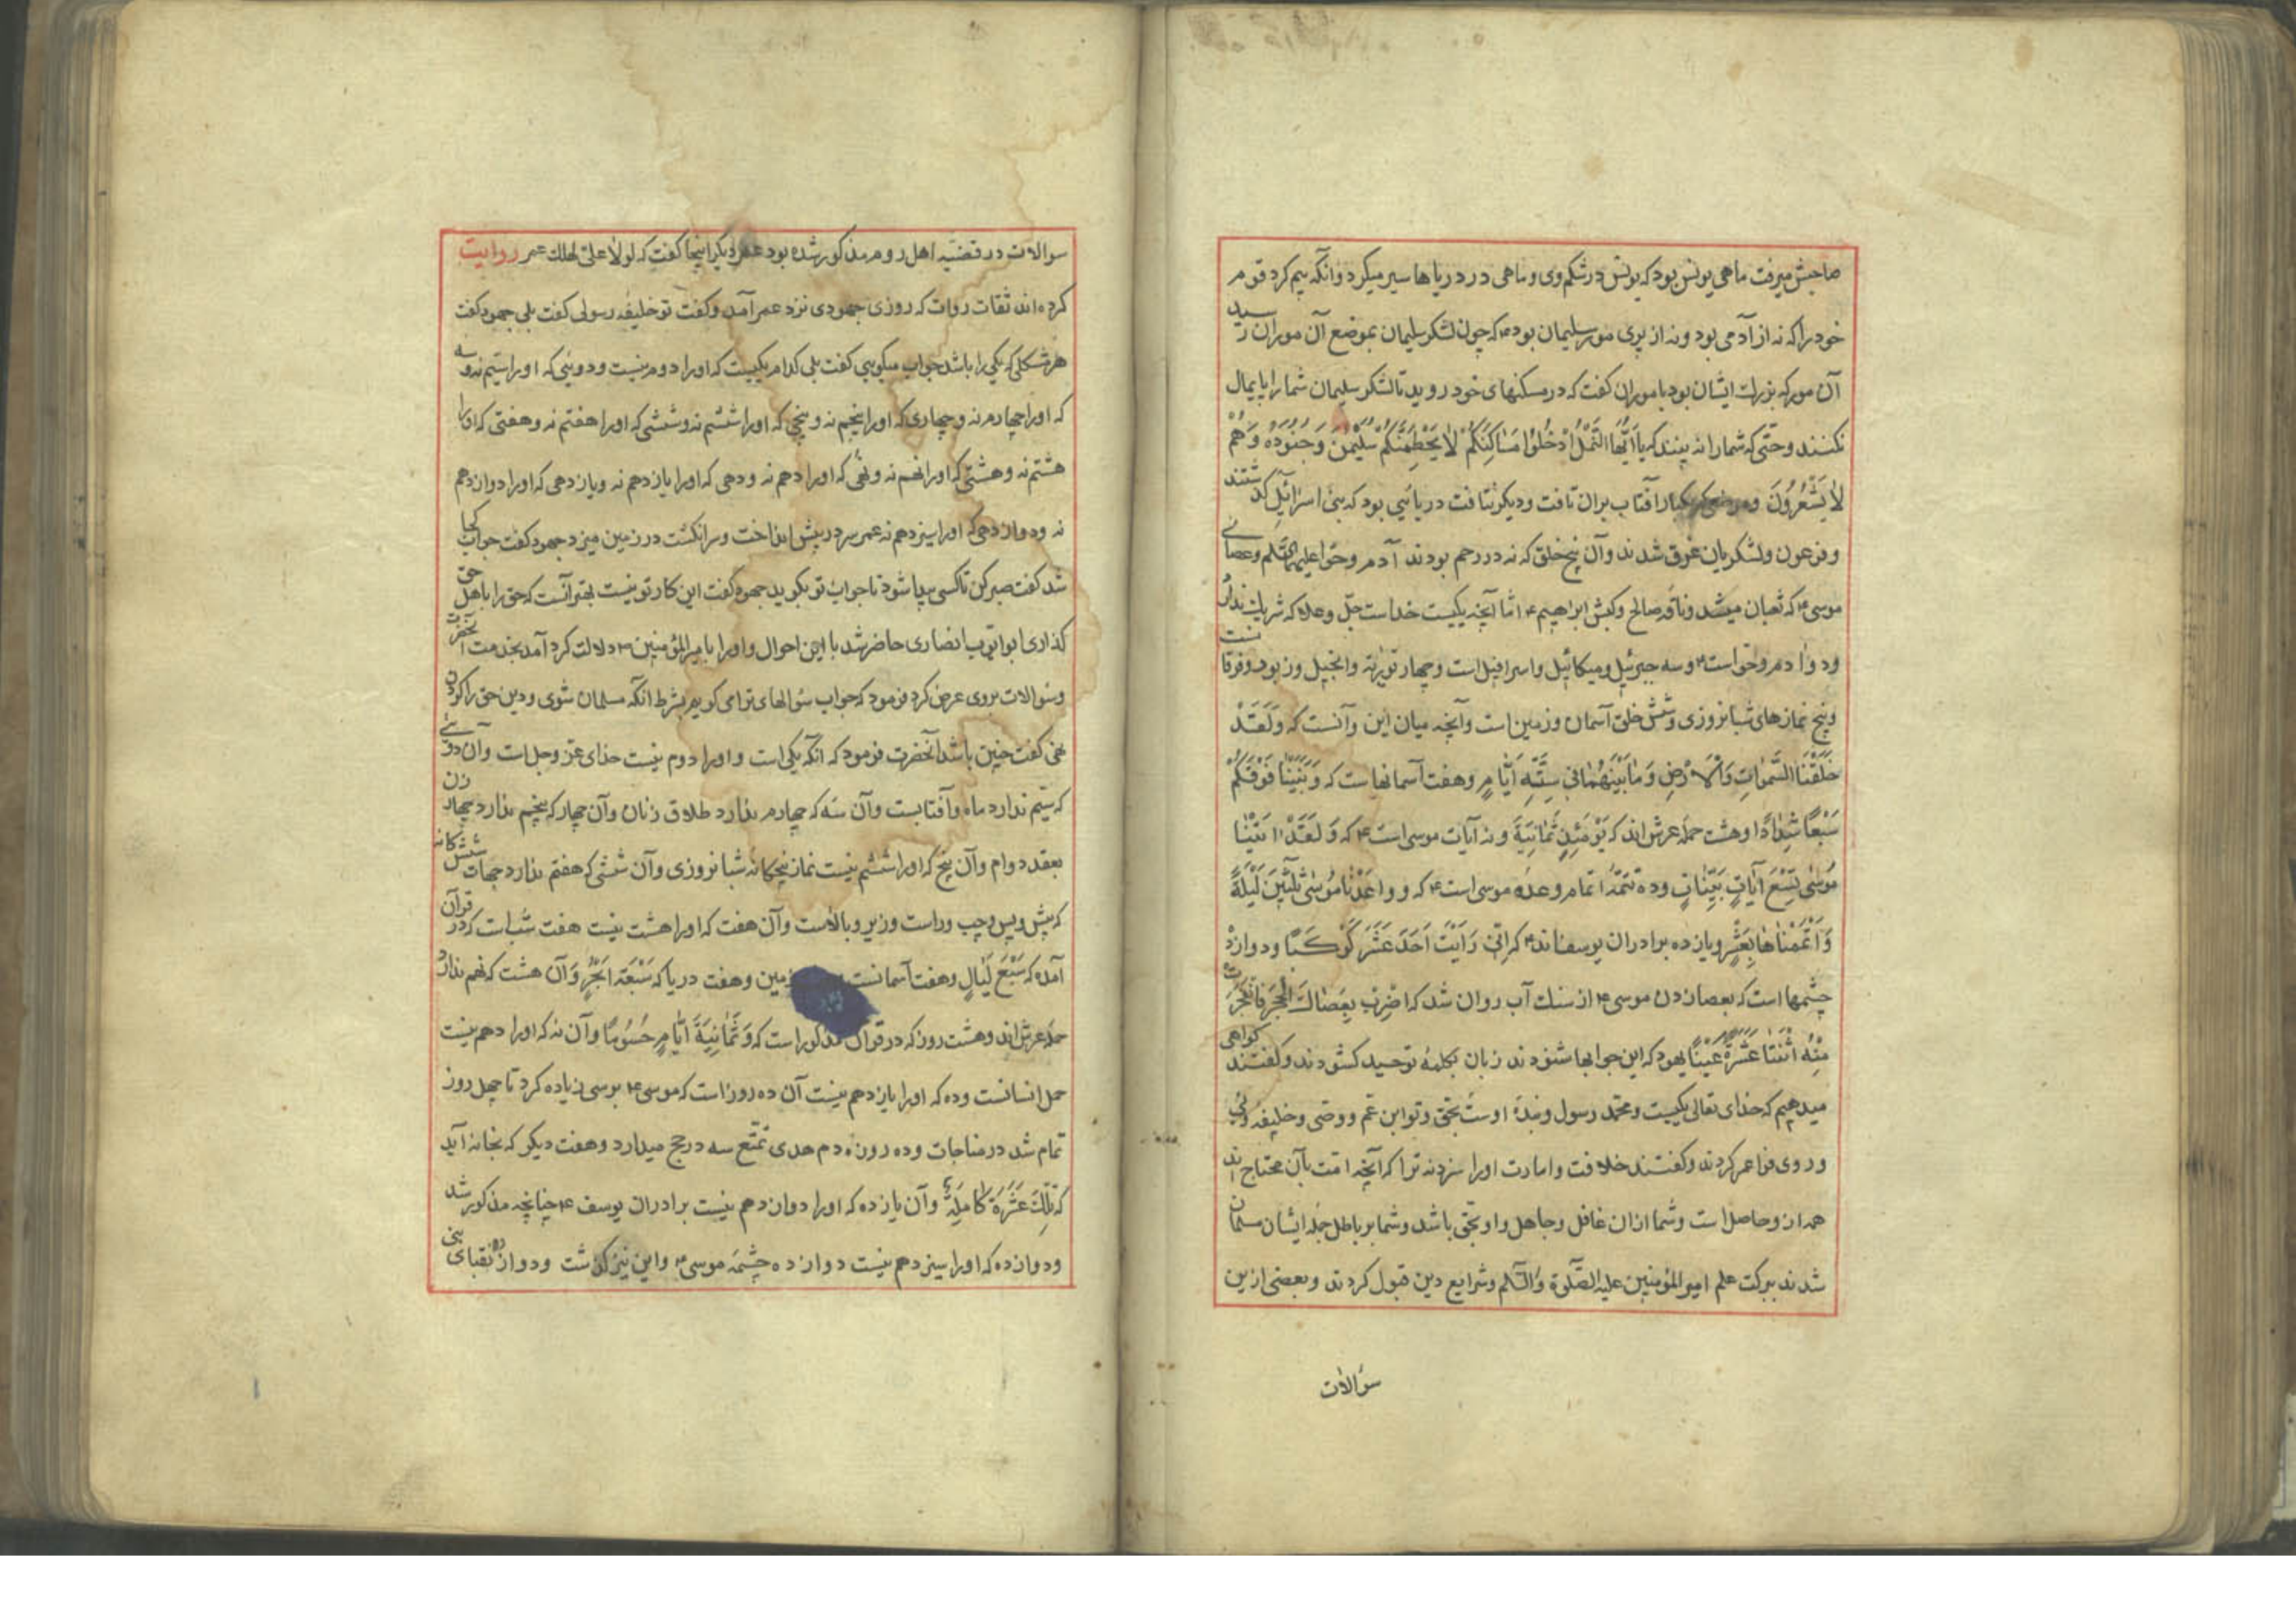 صاحبش میرفت ماهی یونس بود که یونس در شکم وی و ماهی در دریاها سیر میکرد و آنکه بیم کرد قوم
خود را که نه از آدمی بود و نه از پری مور سلیمان بود ۴ که چون لشکر سلیمان بموضع آن موران رسید
آن مور که بزرك ایشان بود با موران گفت که در مسکنهای خود روید تا لشکر سلیمان شما را پایمال
نکنند و حتی که شما را نه بینند که یا اَیُّهَا النَّمْلُ ادْخُلُوا مَسَاکِنَکُمْ لاٰ یَحْطِمَنَّکُمْ سُلَیْمٰنُ وَ جُنُودُهُ وَ هُمْ
لاٰ یَشْعُرُونَ و موضعی که یکبار آفتاب بران تافت و دیگر نتافت دریائیی بود که بنی اسرائیل گذشتند
و فرعون و لشکریان غرق شدند و آن پنج خلق که نه در رحم بودند آدم و حوا علیهما السّلم و عصای
موسی ۴ که ثعبان میشد و ناقه صالح و کبش ابراهیم ۴ امّا آنچه یکیست خداست جلّ و علا که شریك ندارد
و دو ادم و حوّا است ۴ و سه جبرئیل و میکائیل و اسرافیل است و چهار توریٰة و انجیل و زبور و فرقانست
و پنج نمازهای شبانروزی و شش خلق آسمان و زمین است و آنچه میان این و آنست که وَلَقَدْ
خَلَقْنَا السَّمٰوٰاتِ وَ الْاَرْضِ وَ مٰا بَیْنَهُمٰا فِی سِتَّةِ اَیّٰامٍ و هفت آسمانهاست که وَ بَنَیْنٰا فَوْقَکُمْ
سَبْعًا شِدٰادًا و هشت حمله عرش اند که یَوْمَئِذٍ ثَمٰانِیَةَ و نه آیات موسی است ۴ که وَ لَقَدْ اٰتَیْنٰا
مُوسٰی تِسْعَ آیٰاتٍ بَیِّنٰاتٍ و ده تتمّهٔ اتمام وعدهٔ موسی است ۴ که و واعَدْنٰا مُوسٰی ثَلٰثِینَ لَیْلَةً
وَ اَتْمَمْنٰاهٰا بِعَشْرٍ و یازده برادران یوسف اند ۴ که اِنّی رَاَیْتُ اَحَدَ عَشَرَ کَوْکَبًا و دوازده
چشمها است که بعصا زدن موسی ۴ از سنك آب روان شد که اضْرِبْ بِعَصٰاكَ الْحَجَرَ فَانْفَجَرَتْ
مِنْهُ اثْنَتٰا عَشْرَةَ عَیْنًا یهود که این جوابها شنودند زبان بکلمهٔ توحید کشودند و گفتند گواهی
میدهیم که خدای تعالی یکیست و محمّد رسول و بندهٔ اوست بحق و تو ابن عمّ و وصّی و خلیفهٔ وئی
و روی فرا عمر کردند و گفتند خلافت و امارت او را سزد نه ترا که آنچه امّت بآن محتاج اند
همه از و حاصل است و شما ازان غافل و جاهل و او بحق باشد و شما بر باطل جمله ایشان مسلمان
شدند ببرکت علم امیر المؤمنین علیه الصّلوة و السّلم و شرایع دین قبول کردند و بعضی ازین
سؤالات
سوالات در قضیّه اهل روم مذکور شده بود عمر دیگر اینجا گفت که لولا علیّ لهلك عمر روایت
کرده اند ثقات روات که روزی جهودی نزد عمر آمد و گفت تو خلیفهٔ رسولی گفت بلی جهود گفت
هر مشکلی که یکی را باشد جواب میکویی گفت بلی کدام یکیست که او را دوم نیست و دویئی که او را سیّم نه و سه
که او را چهارم نه و چهاری که او را پنجم نه و پنجی که او را ششم نه و ششی که او را هفتم نه و هفتی که او را
هشتم نه و هشتی که او را نهم نه و نهی که او را دهم نه و دهی که او را یازدهم نه و یازدهی که او را دوازدهم
نه و دوازدهی که او را سیزدهم نه عمر سر در پیش انداخت و سر انکشت در زمین میزد جهود گفت جواب کجا
شد گفت صبر کن تا کسی پیدا شود تا جواب تو بکوید جهود گفت این کار تو نیست بهتر آنست که حق را باهل حق
کذاری ابو ایّوب انصاری حاضر شد با این احوال و او را بامیر المؤمنین ۴ دلالت کرد آمد بخدمت آنحضرت
و سؤالات بروی عرض کرد فرمود که جواب سؤالهای ترا می کویم بشرط آنکه مسلمان شوی و دین حق را کردن
نهی گفت چنین باشد آنحضرت فرمود که آنکه یکی است و او را دوم نیست خدای عزّ و جل است و آن دوئی
که سیّم ندارد ماه و آفتابست و آن سه که چهارم ندارد طلاق زنان و آن چهار که پنجم ندارد چهار زن
بعقد دوام و آن پنج که او را ششم نیست نماز پنجکانهٔ شبانروزی و آن ششی که هفتم ندارد جهات ششکانه
که پیش و پس و چپ و راست و زیر و بالاست و آن هفت که او را هشت نیست هفت شب است که در قرآن
آمده که سَبْعَ لَیٰالٍ و هفت آسمانست زمین و هفت دریا که سَبْعَةَ اَبْحُرٍ وَ آن هشت که نهم ندارد
حمله عرش اند و هشت روز که در قرآن مذکور است که وَ ثَمٰانِیَةَ اَیّٰامٍ حُسُومًا و آن نه که او را دهم نیست
حمل انسانست و ده که او را یازدهم نیست آن ده روز است که موسی ۴ بوسی زیاده کرد تا چهل روز
تمام شد در مناجات و ده روزه دم هدی تمتّع سه در حج میدارد و هفت دیکر که بخانه آید
که تِلْكَ عَشَرَةٌ کٰامِلَةٌ و آن یازده که او را دوازدهم نیست برادران یوسف ۴ چنانچه مذکور شد
و دوازده که او را سیزدهم نیست دوازده چشمهٔ موسی ۴ و این نیز کذشت و دوازده نقبای بنی